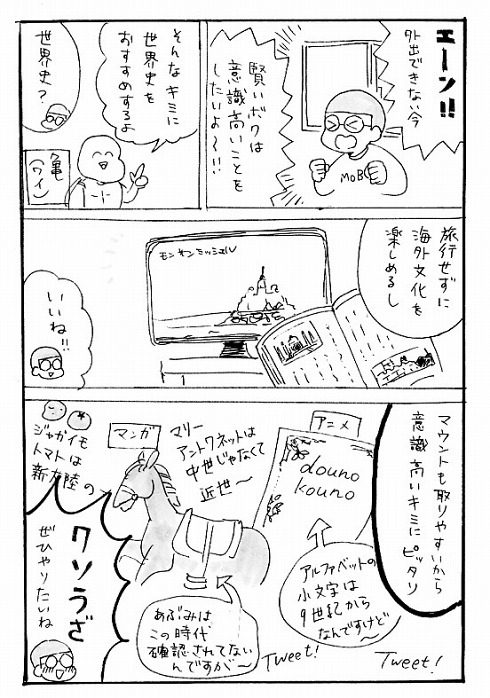 エーン!!
外出できない今
賢いボクは
意識高いことを
したいよ〜!!!
MOB
そんなキミに
世界史を
おすすめするよ
世界史?
亀
(ワイン)
旅行せずに
海外文化を
楽しめるし
モンサンミッシェル
いいね!!
マウントも取りやすいから
意識高いキミにピッタリ
アニメ
douno
kouno
アルファベットの
小文字は
9世紀から
なんですけど〜
Tweet!
マリー
アントワネットは
中世じゃなくて
近世〜
マンガ
あぶみは
この時代
確認されてない
んですが〜
Tweet!
ジャガイモ
トマトは
新大陸の
クソうざ
ぜひやりたいね